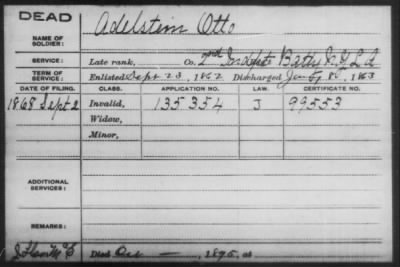 DEAD
Adelstein Otto
NAME OF SOLDIER:
SERVICE: Late rank, Co. 2nd Indpt Batty N.Y.L.A.
TERM OF SERVICE: Enlisted Sept 23, 1862 Discharged 1863
DATE OF FILING. CLASS. APPLICATION NO. LAW. CERTIFICATE NO.
1868 Sept 2 Invalid, 135354 J 99553
Widow,
Minor,
ADDITIONAL SERVICES:
REMARKS:
Died — , 1895, at